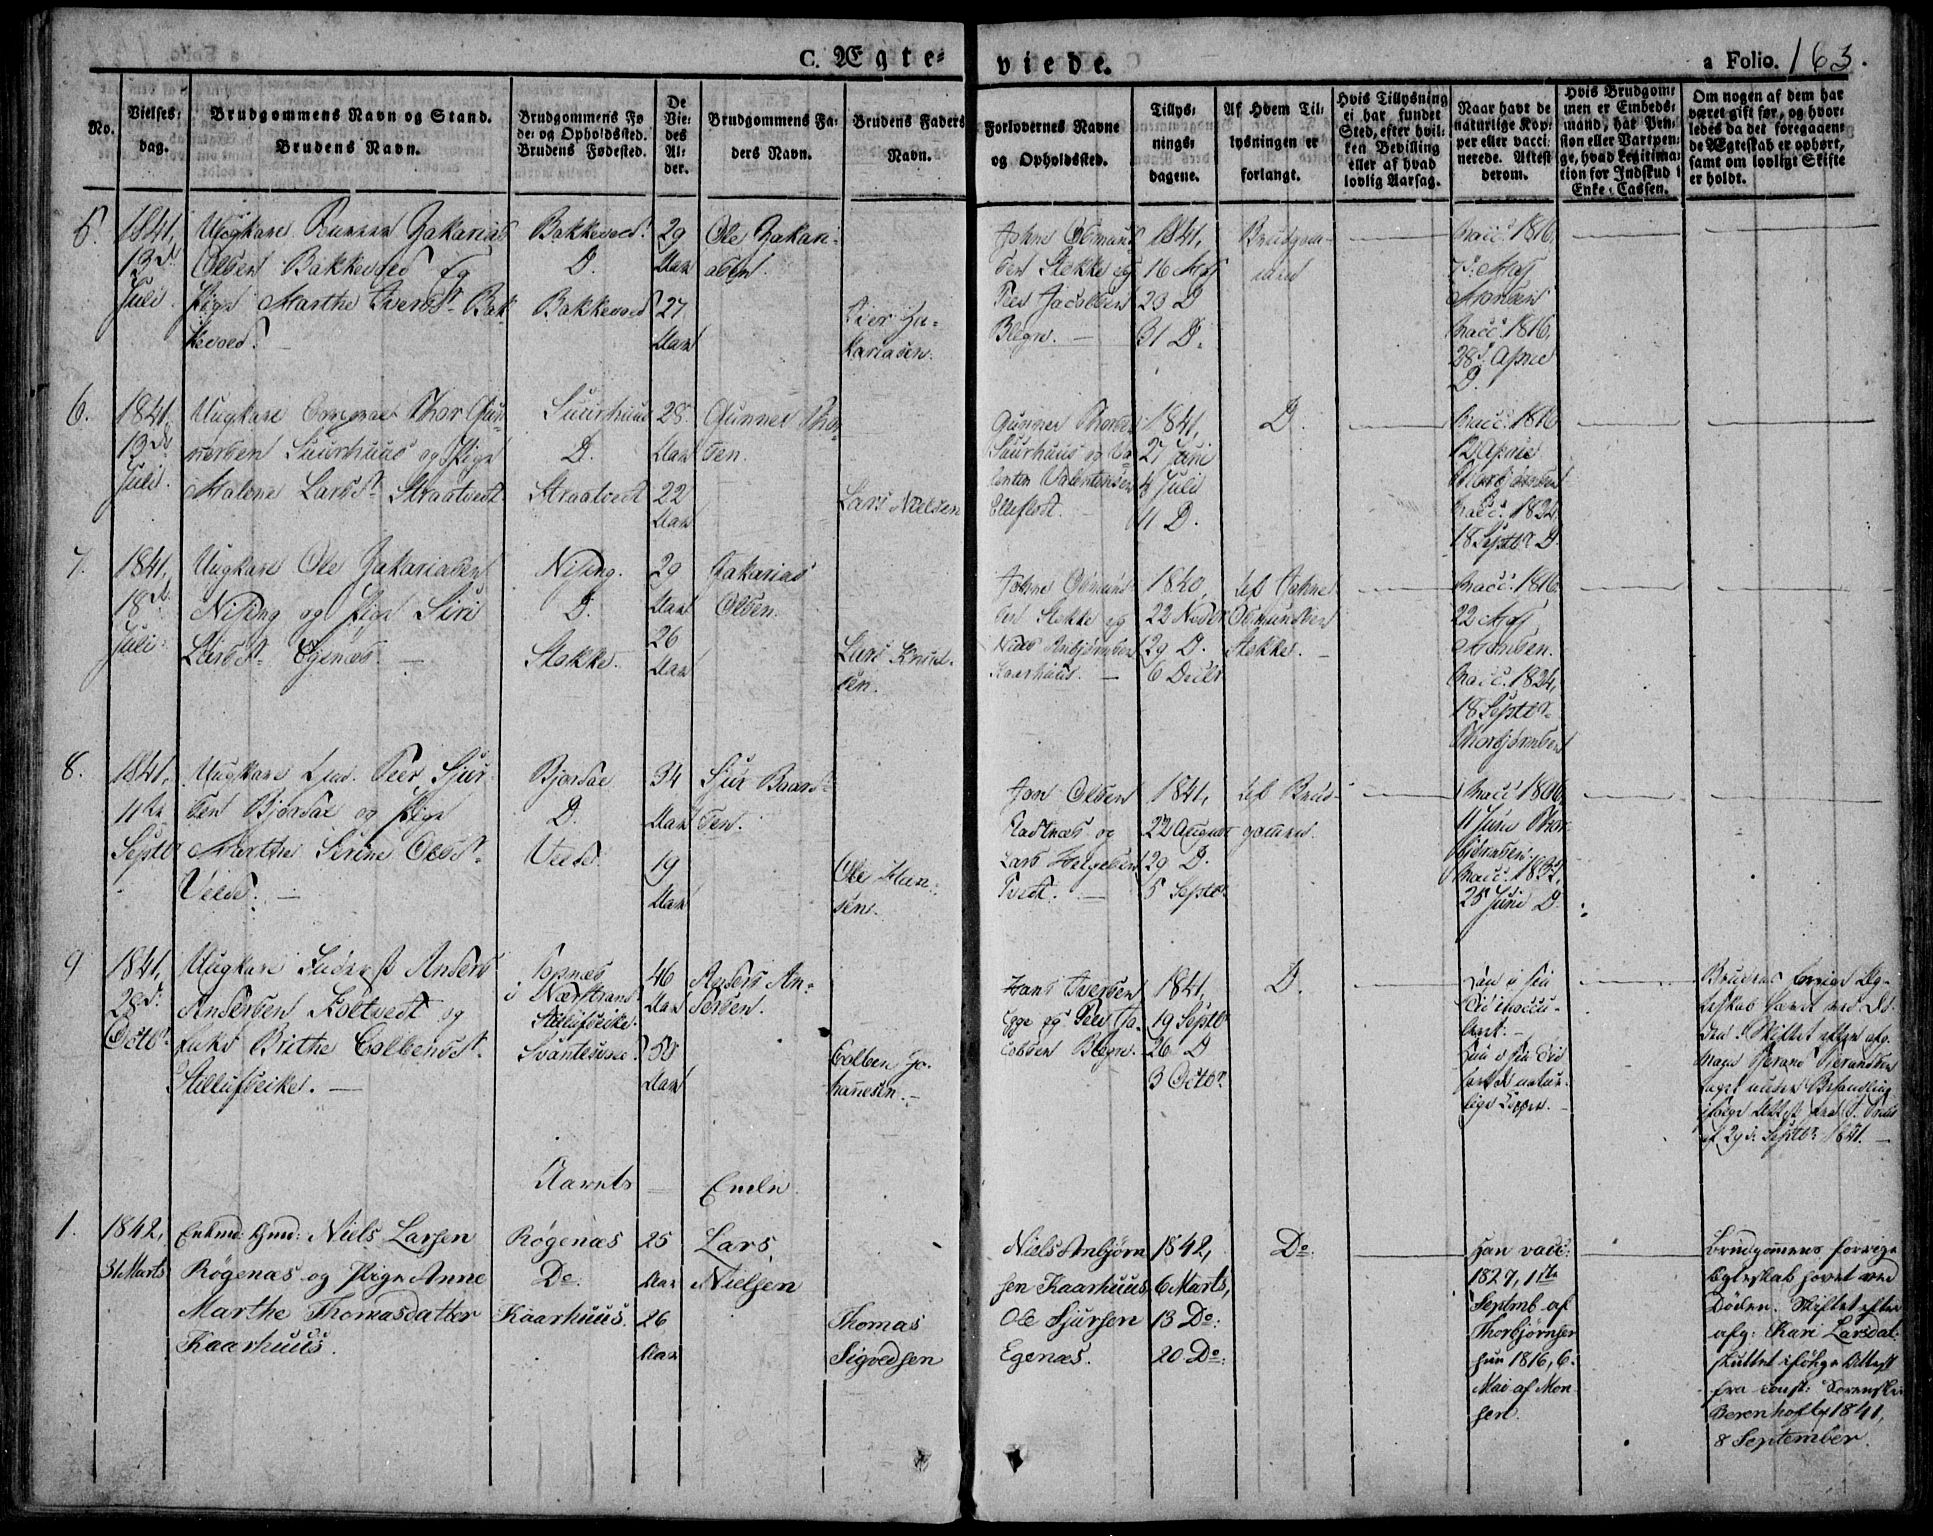 C. Ægte-
viede.
a Folio. 163.
No.
Vielses-
dag.
Brudgommens Navn og Stand.
Brudens Navn.
Brudgommens Fø
de- og Opholdssted.
Brudens Fødested.
De
Vie-
des
Al-
der.
Brudgommens Fa-
ders Navn.
Brudens Faders
Navn.
Forlovernes Navne
og Opholdssted.
Tillys-
nings-
dagene.
Af Hvem Til-
lysningen er
forlangt.
Hvis Tillysning
ei har fundet
Sted, efter hvil-
ken Bevilling
eller af hvad
lovlig Aarsag.
Naar havt de
naturlige Kop-
per eller vacci-
nerede. Attest
derom.
Hvis Brudgom-
men er Embeds-
mand, har Pen-
sion eller Vartpen-
ge, hvad Legitima-
tion for Indskud i
Enke-Cassen.
Om nogen af dem har
været gift før, og hvor-
ledes da det foregaaen-
de Ægteskab er ophørt,
samt om lovligt Skifte
er holdt.
5.
1841,
13 d.
Juli.
Ungkarl Zakarias
Olsen Bakkevold og
Pige Marthe Bak-
kevold.
Bakkevold.
D.
Bakkevold
29
Aar
27
Aar
Ole Zakari-
asen.
Za-
kariasen.
Johne Osmund-
sen Stokke og
Peer Jacobsen
Blegn.
1841,
16 Maj
23 D
31 D.
Brudgom-
men
vacc. 1816,
7 d. Maj
Monsen
vacc. 1816,
28 d. April
D.
6.
1841,
13 d.
Juli.
Ungkarl Thor Gun-
nersen Suurhuus og Pige
Malene Larsd. Straatvedt
Suurhuus
D.
Straatvedt
28
Aar
22
Aar
Gunner Thor-
sen.
Lars Nielsen
Gunner Thorsen
Suurhuus og Va-
lentin Valentinsen
Elleflodt.
1841,
27 Juni
4 Juli
11 D.
D.
vacc. 1816
12 April
Thorbjørnsen
vacc. 1824,
18 Septbr D.
7.
1841,
18 d.
Juli.
Ungkarl Ole Zakariasen
Nising og Pige Siri
Larsd. Egenæs.
Nising.
D.
Stokke.
29
Aar
26
Aar
Zakarias
Olsen.
Lars Knud-
sen.
Johne Osmund-
sen Stokke og
Niels Anbjørnsen
Kaarhuus.
1840,
22 Novbr
29 D.
6 Decbr
Johne
Osmundsen
Stokke.
vacc. 1816.
22 Maj
Monsen.
vacc. 1824,
18 Septbr
Thorbjørnsen
8.
1841,
11te
Septbr
Ungkarl Peer Sjur-
sen Bjordal og Pige
Marthe Serine Olsd.
Velde.
Bjordal
D.
Velde
34
Aar
19
Aar
Sjur Baard-
sen.
Ole Han-
sen.
Jon Olsen
og
Lars Helgesen
Tvedt.
1841,
22 August
29 D.
5 Septbr
Brud-
gommen.
vacc 1806,
11 Juni Thor-
bjørnsen
vacc. 1832,
25 Juni D.
9
1841,
28 d.
Octbr
Ungkarl Anders
Andersen Koltvedt og
Enke Brithe Colbensd.
Stellufseike.
i Nærstrand
Stellufseike.
46
Aar
50
Aar
Anders An-
dersen.
Colben Jo-
hannesen.
Hans Iversen
Egge og Peer Ja-
cobsen Blegn.
1841,
19 Septbr
26 D
3 Octbr
D.
Han i sin
Tid vaccine-
ret.
Hun i sin Tid
havt de natur-
lige Kopper.
Brudens forrige Æg-
teskab hævet ved Dø-
den. Skiftet efter afg.
Mand
taget under Behandling
ifølge Attest fra
af 29 d. Septbr 1841.
Aarets Ende.
1.
1842,
31 Marts
Enkmd: Gmd: Niels Larsen
Røgenæs og Pige Anne
Marthe Thomasdatter
Kaarhuus.
Røgenæs
Do.
Kaarhuus.
25
Aar
26
Aar
Lars
Nielsen
Thomas
Sigvedsen
Niels Anbjørn-
sen Kaarhuus,
Ole Sjursen
Egenæs.
1842,
6 Marts,
13 Do:
20 Do:
Do:
Han vacc:
1827, 11te
Septmb af
Thorbjørnsen
hun 1816, 6.
Mai af Mon-
sen.
Brudgommens forrige
Egteskab hævet ved
Døden. Skiftet efter
afg: Kari Larsdat.
sluttet ifølge Attest
fra const: Sorenskr.
Berenhoft 1841,
8 September.